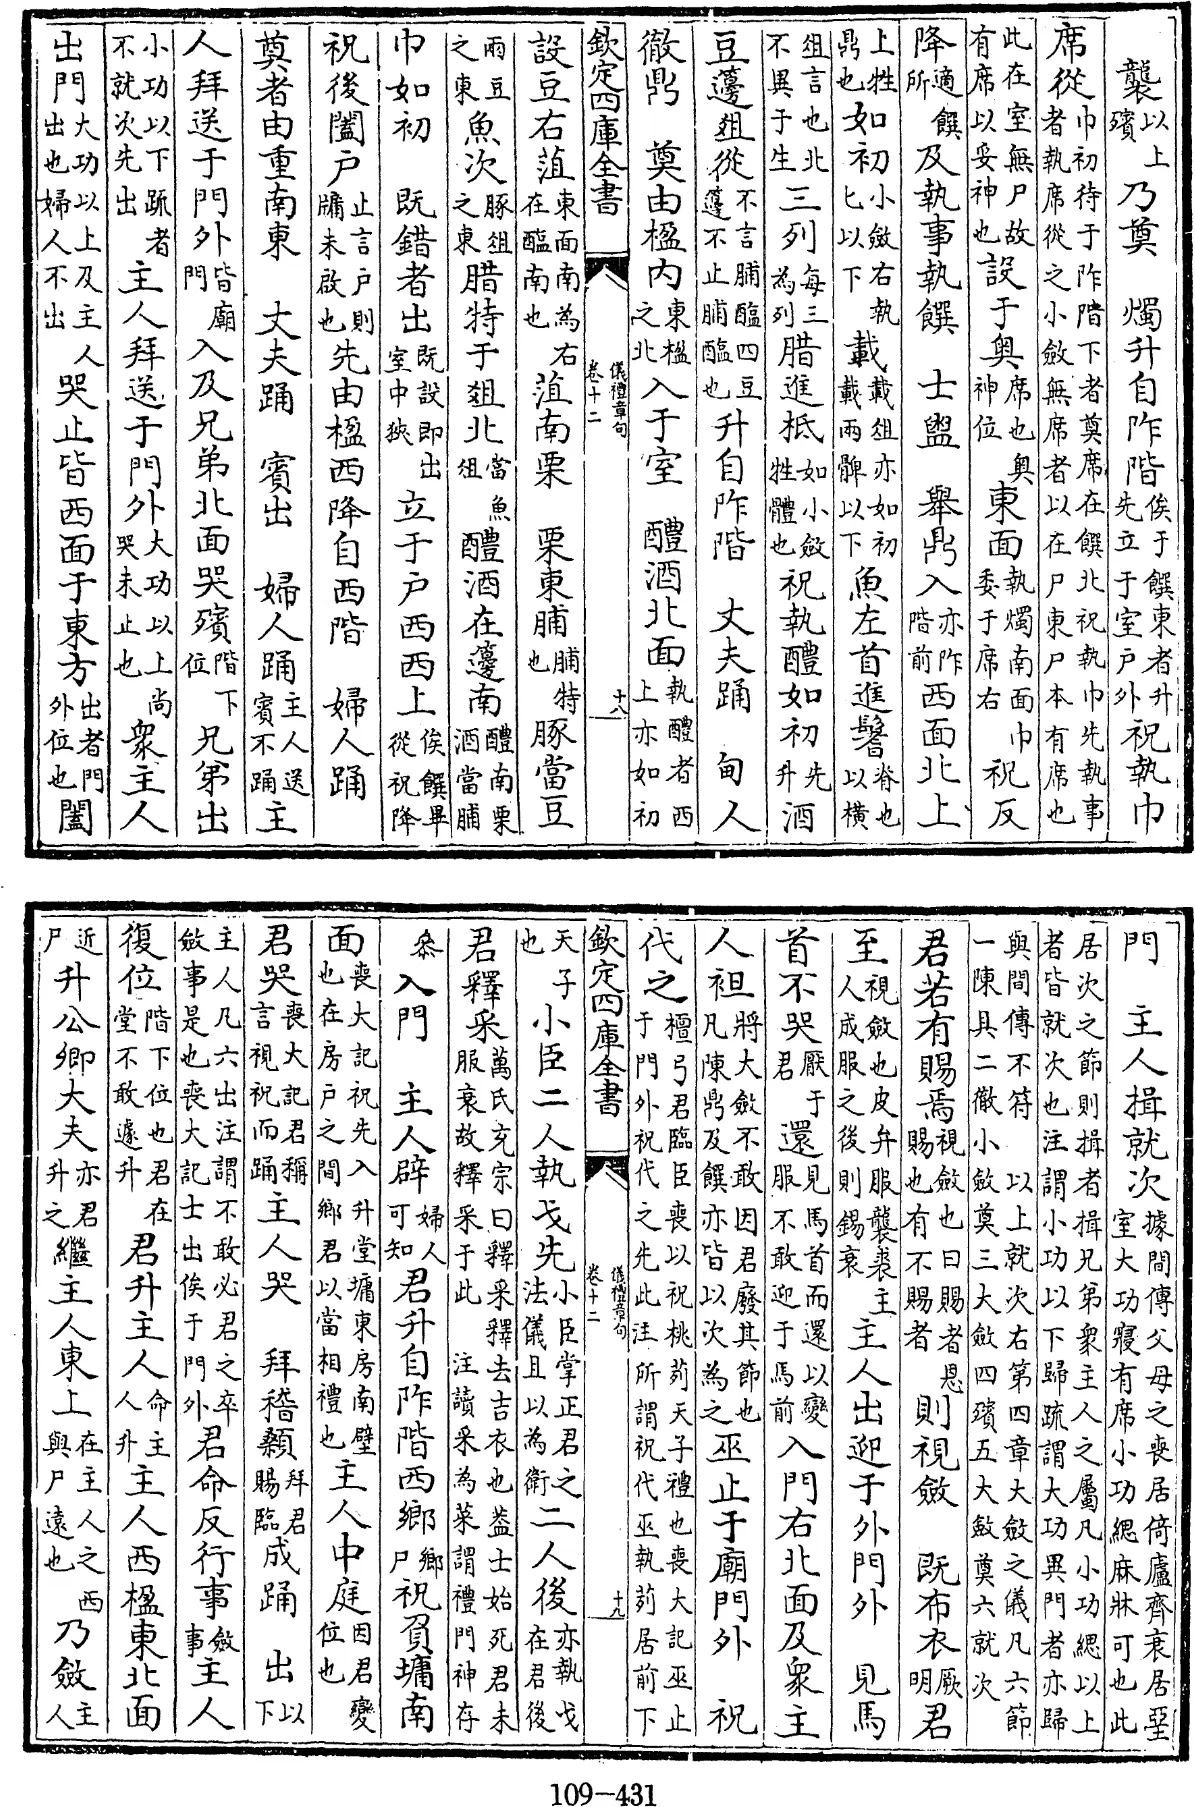 襲以上殯乃奠 燭升自阼階俟于饌東者升先立于室户外祝執巾
席從巾初待于阼階下者奠席在饌北祝執巾先執事者執席從之小斂無席者以在尸東尸本有席也
此在室無尸故有席以妥神也設于奥席也奥神位東面執燭南面巾委于席右祝反
降適饌所及執事執饌 士盥 舉鼎入亦阼階前西面北上
上牲鼎也如初小斂右執匕以下載載俎亦如初載兩髀以下魚左首進鬐脊也以橫
俎言也北不異于生三列每三為列腊進柢如小斂牲體也祝執醴如初先升酒
豆籩俎從不言脯醢四豆籩不止脯醢也升自阼階 丈夫踊 甸人
徹鼎 奠由楹内東楹之北入于室 醴酒北面執醴者西上亦如初
欽定四庫全書 儀禮章句 卷十二 十八
設豆右菹東面南為右在醢南也菹南栗 栗東脯脯特也豚當豆
兩豆之東魚次豚俎之東腊特于俎北當魚俎醴酒在籩南醴南栗酒當脯
巾如初 既錯者出既設即出室中狹立于户西西上俟饌畢從祝降
祝後闔户止言户則牖未啟也先由楹西降自西階 婦人踊
奠者由重南東 丈夫踊 賓出 婦人踊主人送賓不踊主
人拜送于門外皆廟門入及兄弟北面哭殯階下位兄弟出
小功以下疏者不就次先出主人拜送于門外大功以上尚哭未止也衆主人
出門大功以上及主人出也婦人不出哭止皆西面于東方出者門外位也闔
門 主人揖就次據間傳父母之喪居倚廬齊衰居堊室大功寢有席小功緦麻牀可也此
居次之節則揖者揖兄弟衆主人之屬凡小功緦以上者皆就次也注謂小功以下歸疏謂大功異門者亦歸
與間傳不符 以上就次右第四章大斂之儀凡六節一陳具二徹小斂奠三大斂四殯五大斂奠六就次
君若有賜焉視斂也曰賜者恩賜也有不賜者則視斂 既布衣厥明君
至視斂也皮弁服襲裘主人成服之後則錫衰主人出迎于外門外 見馬
首不哭厭于君還見馬首而還以變服不敢迎于馬前入門右北面及衆主
人袒將大斂不敢因君廢其節也凡陳鼎及饌亦皆以次為之巫止于廟門外 祝
代之檀弓君臨臣喪以祝桃茢天子禮也喪大記巫止于門外祝代之先此注所謂祝代巫執茢居前下
欽定四庫全書 儀禮章句 卷十二 十九
天子也小臣二人執戈先小臣掌正君之法儀且以為衛二人後亦執戈在君後
君釋采萬氏充宗曰釋采釋去吉衣也蓋士始死君未服衰故釋采于此 注讀采為菜謂禮門神存
叅入門 主人辟婦人可知君升自阼階西鄉鄉尸祝負墉南
面喪大記祝先入升堂墉東房南壁也在房户之間鄉君以當相禮也主人中庭因君變位也
君哭喪大記君稱言視祝而踊主人哭 拜稽顙拜君賜臨成踊 出以下
主人凡六出注謂不敢必君之卒斂事是也喪大記士出俟于門外君命反行事斂事主人
復位階下位也君在堂不敢遽升君升主人命主人升主人西楹東北面
近尸升公卿大夫亦君升之繼主人東上在主人之西與尸遠也乃斂主人
109-431